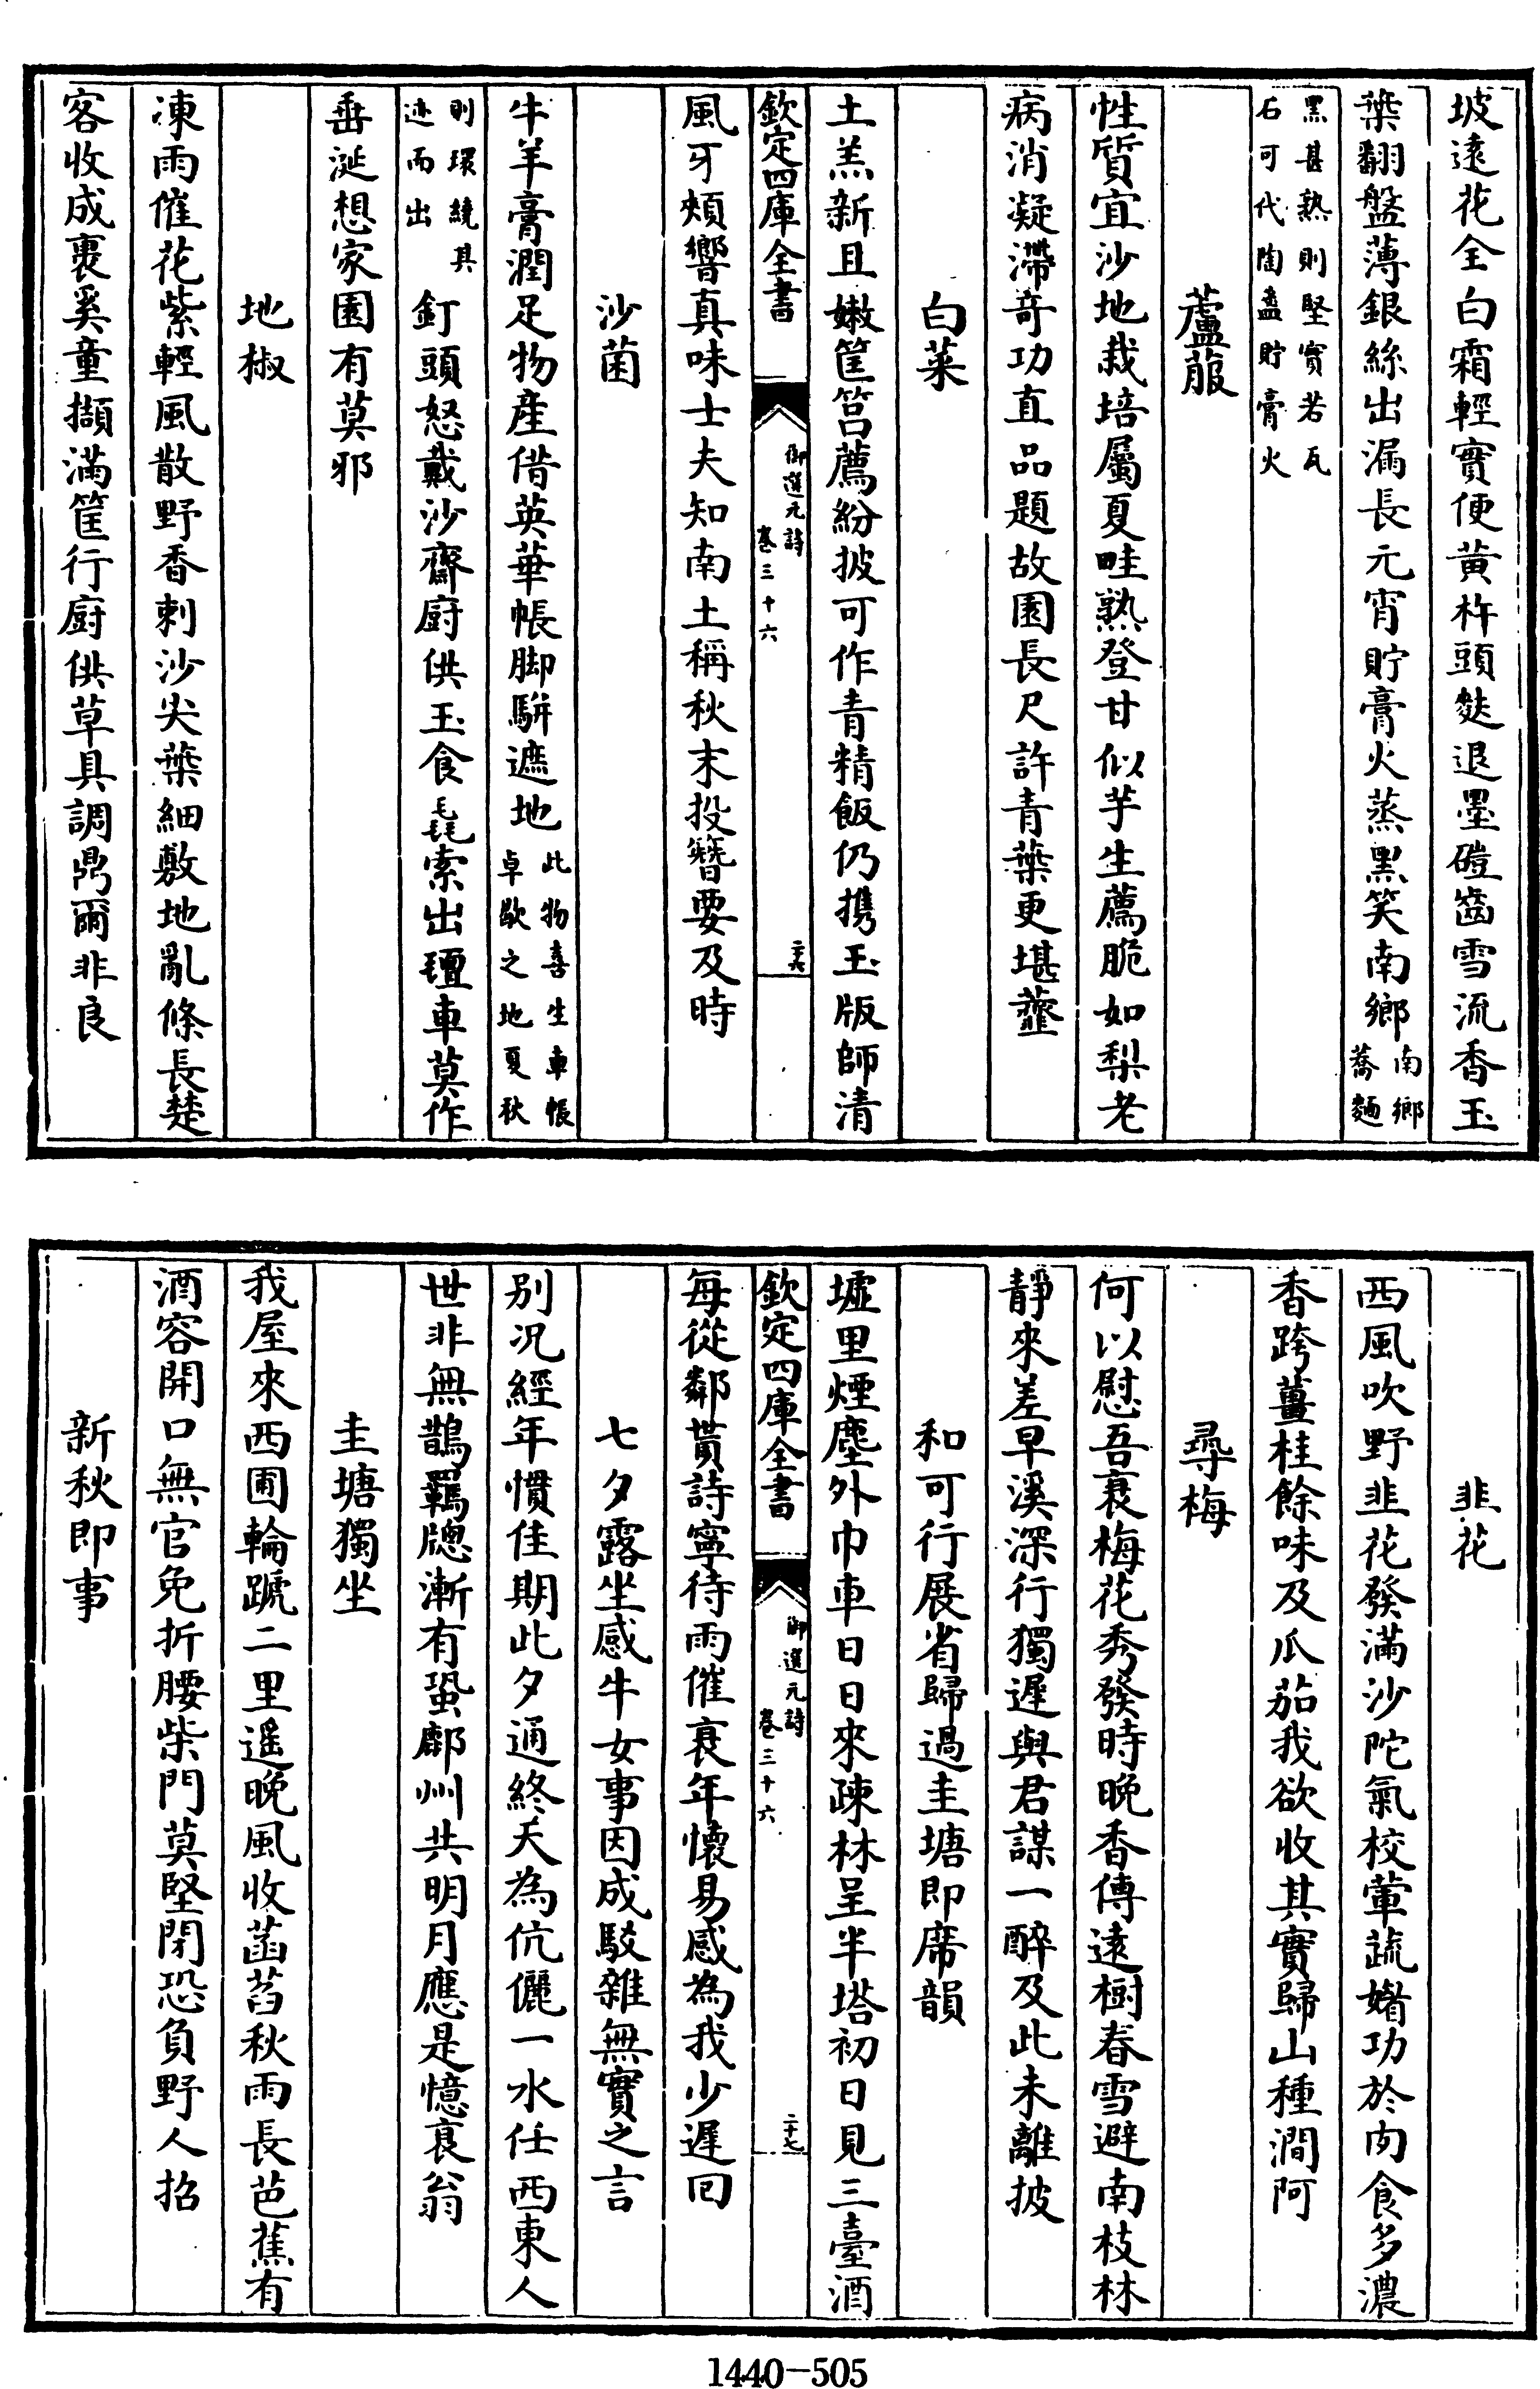 坡遠花全白霜輕實便黃杵頭麩退墨磑齒雪流香玉
葉翻盤薄銀絲出漏長元宵貯膏火蒸黑笑南鄉南鄉蕎麵
黑甚熟則堅實若瓦石可代陶盞貯膏火
蘆菔
性質宜沙地栽培屬夏畦熟登甘似芋生薦脆如梨老
病消凝滯竒功直品題故園長尺許青葉更堪虀
白菜
土羔新且嫩筐筥薦紛披可作青精飯仍攜玉版師清
欽定四庫全書
御選元詩
卷三十六
二十六
風牙頰響真味士夫知南土稱秋末投簪要及時
沙菌
牛羊膏潤足物産借英華帳脚駢遮地此物喜生車帳卓歇之地夏秋
則環繞其迹而出釘頭怒戴沙齋廚供玉食毳索出氊車莫作
垂涎想家園有莫邪
地椒
凍雨催花紫輕風散野香刺沙尖葉細敷地亂條長楚
客收成裹奚童擷滿筐行廚供草具調鼎爾非良
韭花
西風吹野韭花發滿沙陀氣校葷蔬媚功於肉食多濃
香跨薑桂餘味及瓜茄我欲收其實歸山種澗阿
尋梅
何以慰吾衰梅花秀發時晚香傳遠樹春雪避南枝林
靜來差早溪深行獨遲與君謀一醉及此未離披
和可行展省歸過圭塘即席韻
墟里煙塵外巾車日日來疎林呈半塔初日見三臺酒
欽定四庫全書
御選元詩
卷三十六
二十七
每從鄰貰詩寧待雨催衰年懷易感為我少遲回
七夕露坐感牛女事因成駁雜無實之言
别况經年慣佳期此夕通終天為伉儷一水任西東人
世非無鵲羈牕漸有蛩鄜州共明月應是憶衰翁
圭塘獨坐
我屋來西圃輪蹏二里遥晚風收菡萏秋雨長芭蕉有
酒容開口無官免折腰柴門莫堅閉恐負野人招
新秋即事
1440-505